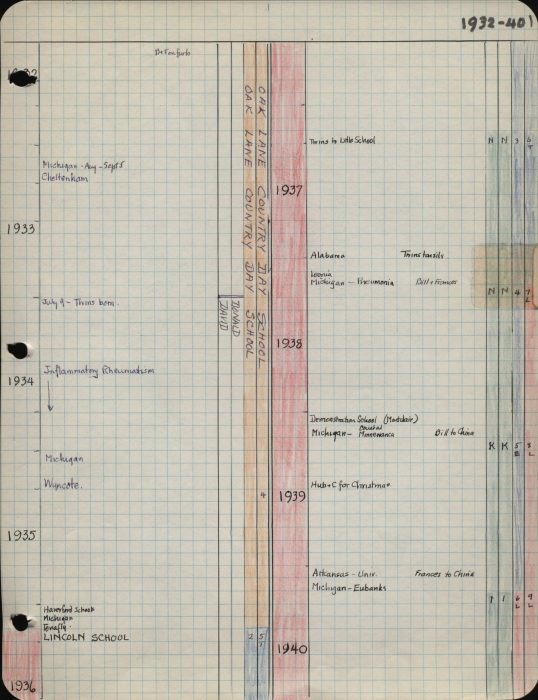 1932-40
1932
Michigan - Aug - Sept 5
Cheltenham
1933
July 9 - Twins born.
Inflammatory Rheumatism
1934
Michigan
Wyncote.
1935
Haverford School
Michigan
Tenafly.
LINCOLN SCHOOL
1936
OAK LANE COUNTRY DAY SCHOOL
OAK LANE COUNTRY DAY SCHOOL
DONALD
DAVID
4
2 5
T
Twins to Little School
N N 3 6
T
1937
Alabama Twins tonsils.
Leonia
Michigan - Pneumonia Bill + Frances
N N 4 7
L
1938
Demonstration School (Montclair)
Michigan - Minnewanca Bill to China
K K 5 8
E L
1939
Hub + C for Christmas
Arkansas - Univ. Frances to China
Michigan - Eubanks
1 1 6 9
L L
1940